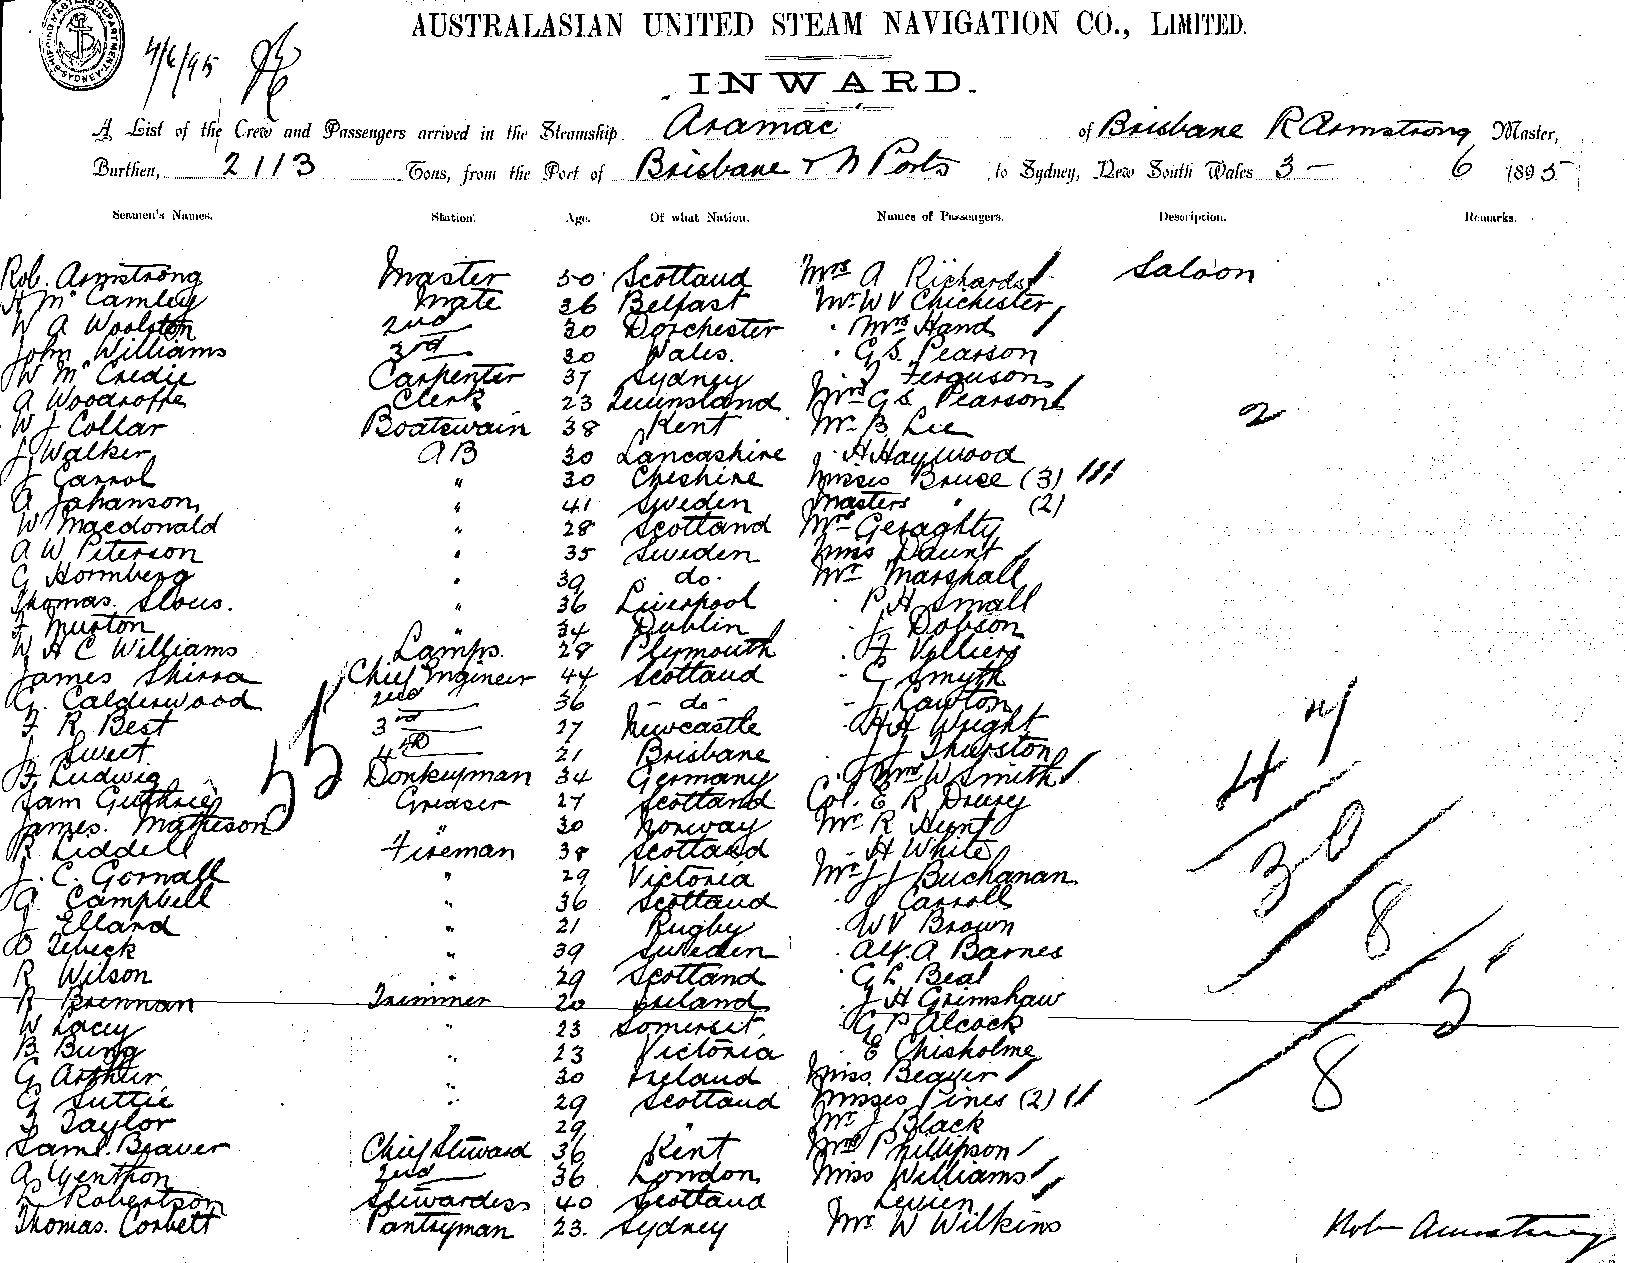 AUSTRALASIAN UNITED STEAM NAVIGATION CO., LIMITED.
4/6/95
INWARD.
A List of the Crew and Passengers arrived in the Steamship Aramac of Brisbane R Armstrong Master,
Burthen, 2113 Tons, from the Port of Brisbane & N Ports to Sydney, New South Wales 3 - 6 1895
Seamen's Names. Station. Age. Of what Nation. Names of Passengers. Description. Remarks.
Rob. Armstrong Master 50 Scotland Mrs A Richards Saloon
H Mc Camley Mate 36 Belfast Mr W V Chichester
W A Woolston 2nd 30 Dorchester Mrs Hand
John Williams 3rd 30 Wales. G S Pearson
W Mc Credie Carpenter 37 Sydney J Ferguson
A Woodroffe Clerk 23 Queensland Mrs G S Pearson
W J Collar Boatswain 38 Kent Mr B Lee 2
J Walker AB 30 Lancashire H Haywood
J Carrol " 30 Cheshire Misses Bruce (3)
A Johanson, " 41 Sweden Masters " (2)
W Macdonald " 28 Scotland Mr Geraghty
A W Peterson " 35 Sweden Miss Daunt
G Hormberg " 39 do. Mr Marshall
Thomas Slous. " 36 Liverpool P H Small
F Murton " 34 Dublin J Dobson
W H C Williams Lamps. 28 Plymouth F Villiers
James Shirra Chief Engineer 44 Scotland E Smyth
G. Calderwood 2nd 36 - do - J Lawton
F R Best 3rd 27 Newcastle H H Wright
J Sweet 4th 21 Brisbane J J Thurston
F Ludwig Donkeyman 34 Germany J Mrs W Smith
Sam Guthrie Greaser 27 Scotland Col. E R Drury
James. Matheson " 30 Norway Mr R Hunt
R Liddell Fireman 38 Scotland H White
J. C. Gornall " 29 Victoria Mr J J Buchanan
A Campbell " 36 Scotland J Carroll
J Elland " 21 Rugby W V Brown
O Zebeck " 39 Sweden Alf. A Barnes
R Wilson " 29 Scotland G L Beal
R Brennan Trimmer 20 Ireland J H Grimshaw
W Lacey " 23 Somerset G P Alcock
B Bung " 23 Victoria E Chisholme
G Arthur " 30 Ireland Miss Beaver
G Suttie " 29 Scotland Misses Pines (2)
F Taylor 29 " Mr J Black
Saml. Beaver Chief Steward 36 Kent Mrs Phillipson
A Genthon 2nd 36 London Miss Williams
L Robertson Stewardess 40 Scotland Levien
Thomas. Corbett Pantryman 23. Sydney Mr W Wilkins
Rob Armstrong